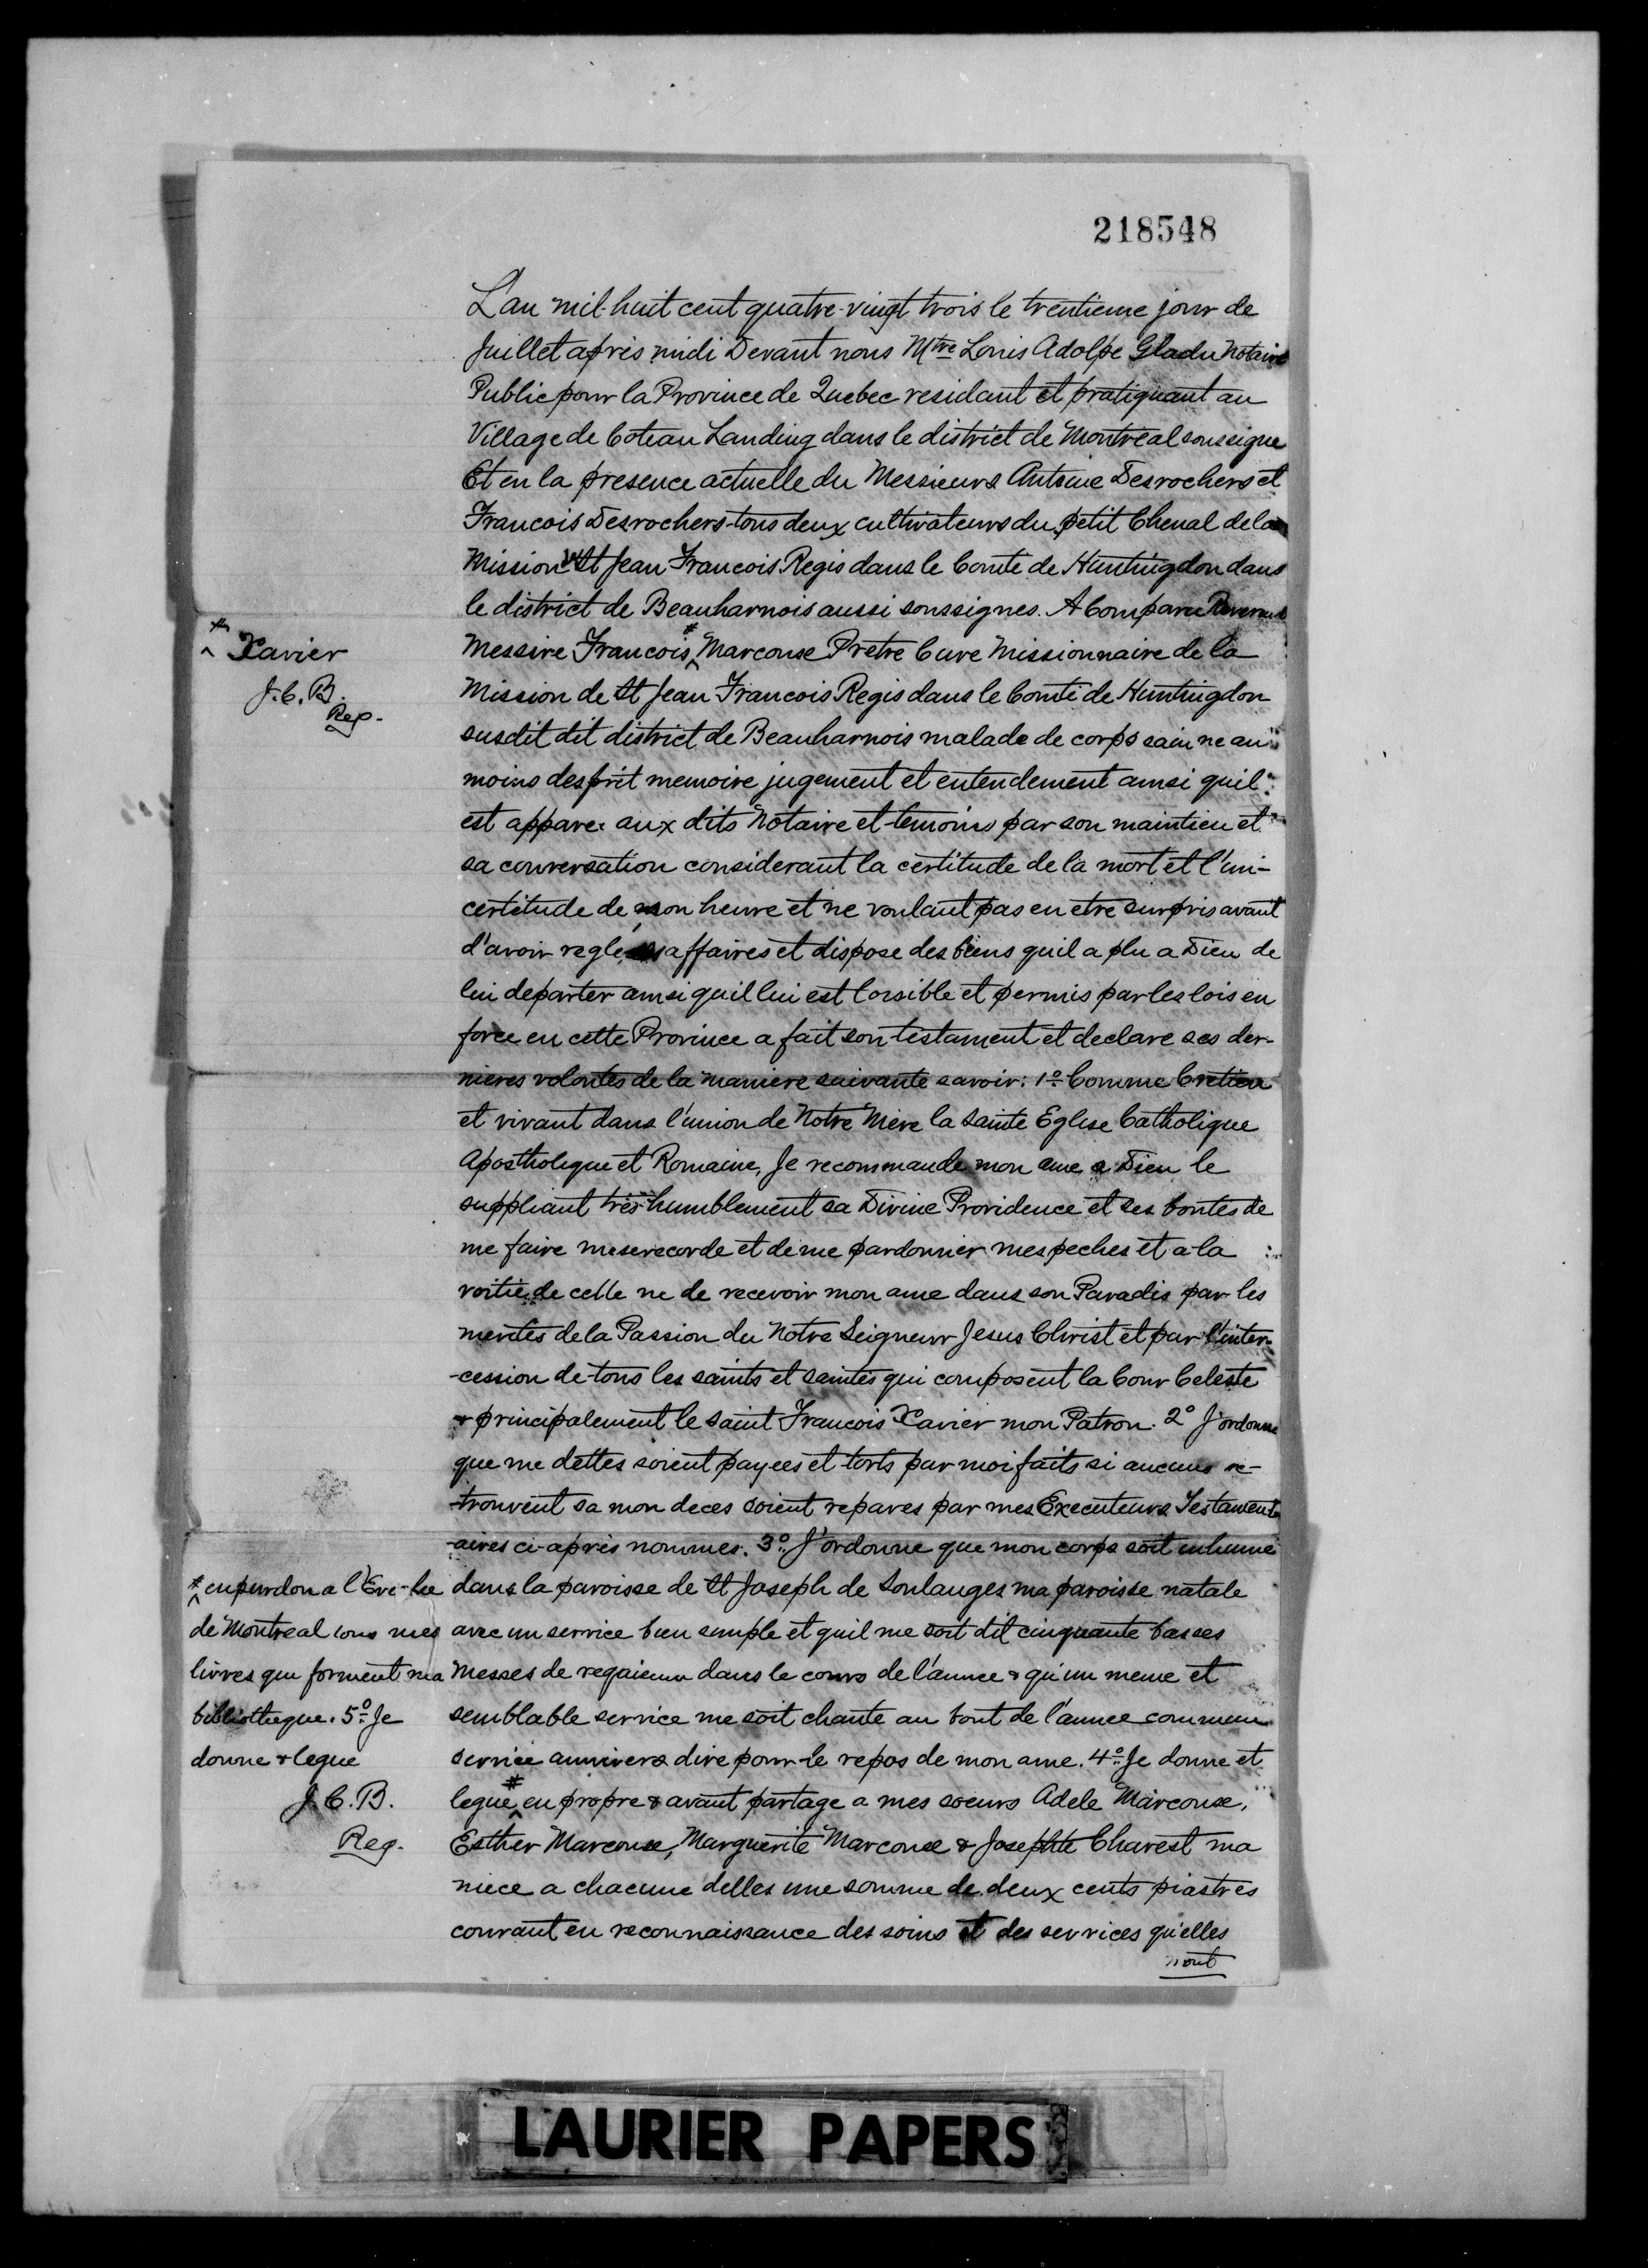 218548
L'an mil huit cent quatre-vingt trois le trentieme jour de
Juillet après midi Devant nous Mtre Louis Adolpe Gladu Notaire
Public pour la Province de Quebec residant et pratiquant au
Village de Coteau Landing dans le district de Montreal soussigne
Et en la presence actuelle du Messieurs Antoine Desrochers et
Francois Desrochers tous deux cultivateurs du petit Chenal de la
Mission St Jean Francois Regis dans le Comte de Huntingdon dans
le district de Beauharnois aussi soussignes. A Comparu Reverend
Messire Francois # Marcouse Pretre Cure Missionnaire de la
# Xavier
J.C.B.
Reg.
Mission de St Jean Francois Regis dans le Comté de Huntingdon
susdit dit district de Beauharnois malade de corps sain ne au
moins desprit memoire jugement et entendement ainsi quil
est appare aux dits Notaire et temoins par son maintien et
sa conversation considerant la certitude de la mort et l'in-
certitude de son heure et ne voulant pas en etre surpris avant
d'avoir reglé affaires et dispose des biens quil a plu a Dieu de
lui departer ainsi quil lui est loisible et permis par les lois en
force en cette Province a fait son testament et declare ses der-
nieres volontes de la maniere suivante savoir: 1o Comme Cretien
et vivant dans l'union de Notre Mere la Sainte Eglise Catholique
Apostholique et Romaine, Je recommande mon ame a Dieu le
suppliant très humblement sa Divine Providence et ses bontes de
me faire miserecorde et de me pardonner mes peches et a la
voitie de celle ne de recevoir mon ame dans son Paradis par les
merites de la Passion du Notre Seigneur Jesus Christ et par l'inter-
-cession de tous les saints et saintes qui composent la Cour Celeste
& principalement le saint Francois Xavier mon Patron. 2o J'ordonne
que me dettes soient payees et torts par moi faits si aucuns se-
trouvent sa mon deces soient repares par mes Executeurs Testament-
-aires ci-après nommes. 3o J'ordonne que mon corps soit inhume
dans la paroisse de St Joseph de Soulanges ma paroisse natale
avec un service bien simple et quil me soit dit cinquante basses
Messes de requiem dans le cours de l'annee & qu'un meme et
semblable service me soit chante au bout de l'annee comme un
service annivers dire pour le repos de mon ame. 4o Je donne et
legue # en propre & avant partage a mes soeurs Adele Marcouse,
Esther Marcouse, Marguerite Marcouse & Josephte Charest ma
niece a chacune delles une somme de deux cents piastres
courant en reconnaissance des soins et des services qu'elles
nont
# en pur don a l'Eve-he
de Montreal tous mes
livres qui forment ma
bibliotheque. 5o Je
donne & legue
J.C.B.
Reg.
LAURIER PAPERS